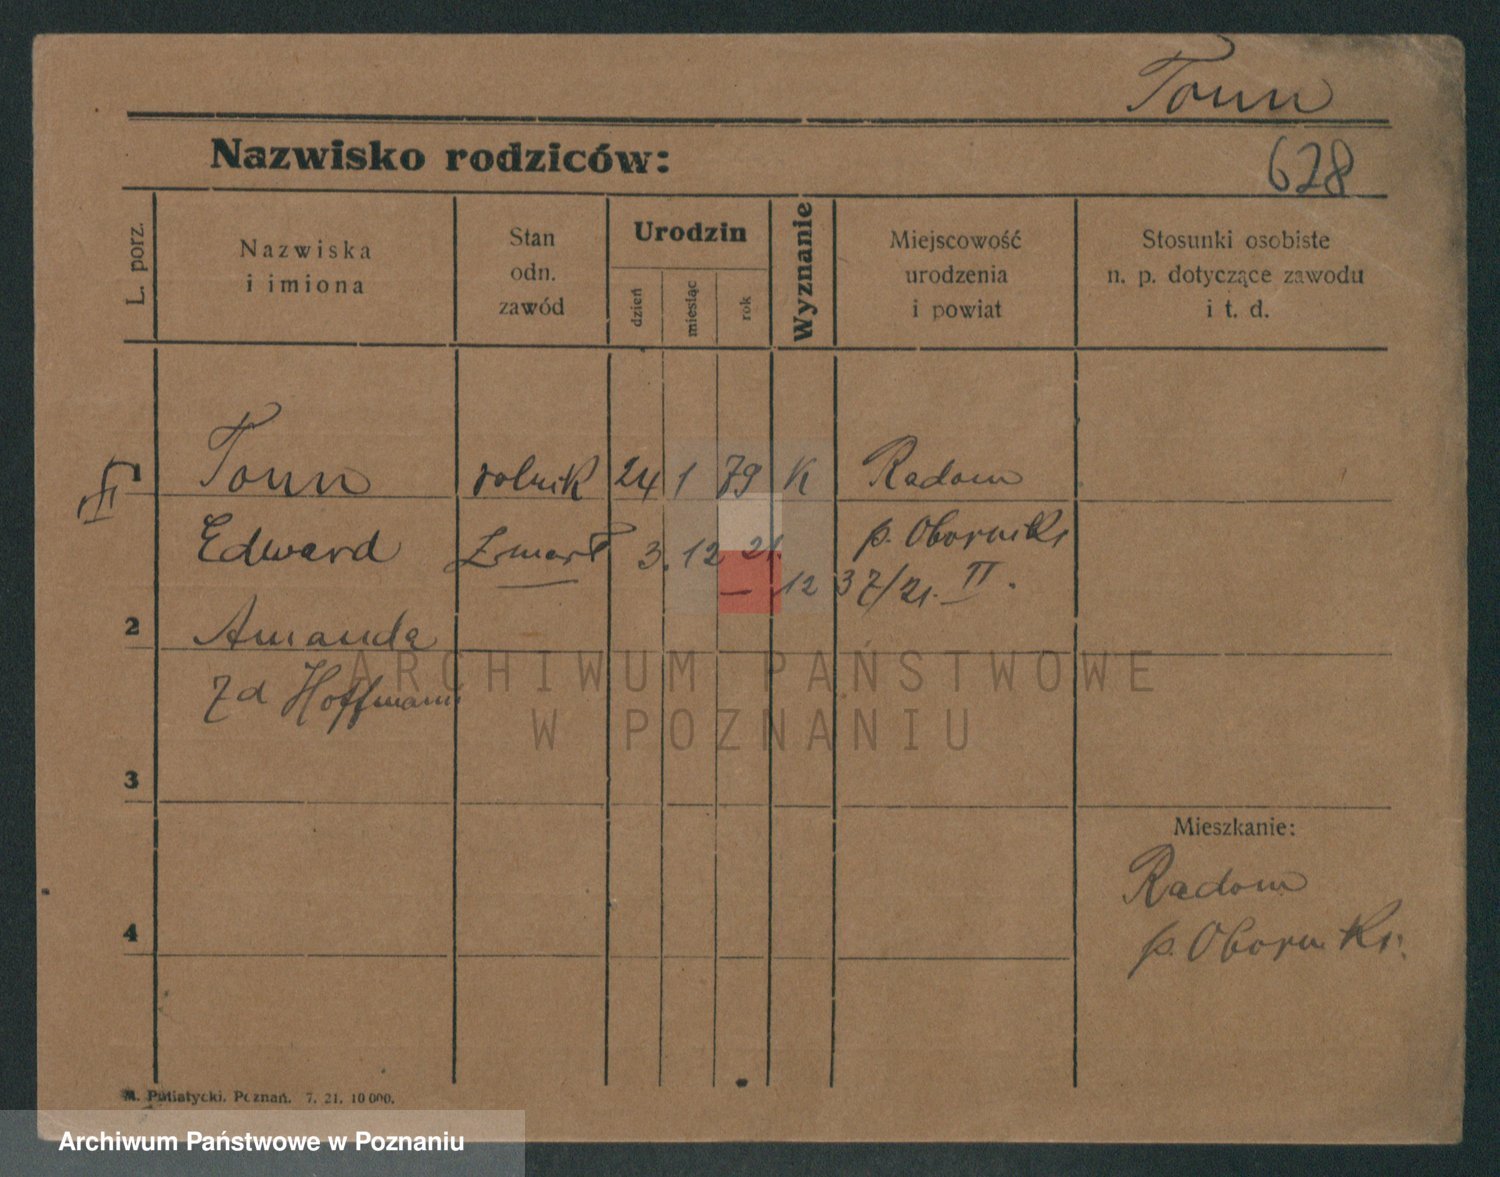 Tonn
Nazwisko rodziców:
628
L. porz.
Nazwiska
i imiona
Stan
odn.
zawód
Urodzin
dzień
miesiąc
rok
Wyznanie
Miejscowość
urodzenia
i powiat
Stosunki osobiste
n. p. dotyczące zawodu
i t. d.
1 Tonn rolnik 24 1 79 K Radom
Edward Zmarł 3. 12 21. p. Oborniki
12 37/21. II.
2 Amanda
zd Hoffmann
3
Mieszkanie:
Radom
4 p. Oborniki.
M. Putiatycki, Poznań. 7. 21. 10 000.
ARCHIWUM PAŃSTWOWE
W POZNANIU
Archiwum Państwowe w Poznaniu